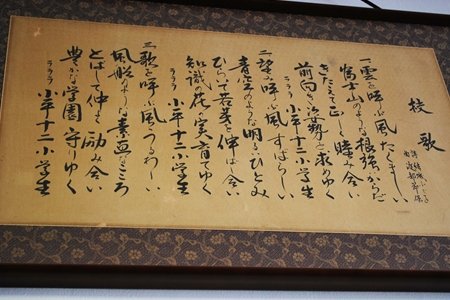 校歌
一 雲を呼ぶ風たくましい
富士山のような根強いからだ
きたえて正しく睦み合い
前向きの姿勢を求めゆく
ラララ 小平十二小学生
二 望み呼ぶ風すばらしい
青空のような明るいひとみ
ひらいて若芽を伸ばし合い
知識の花や実育てゆく
ラララ 小平十二小学生
三 歌を呼ぶ風うるわしい
風船のような素直なこころ
とばして仲よく励み合い
豊かな学園守りゆく
ラララ 小平十二小学生